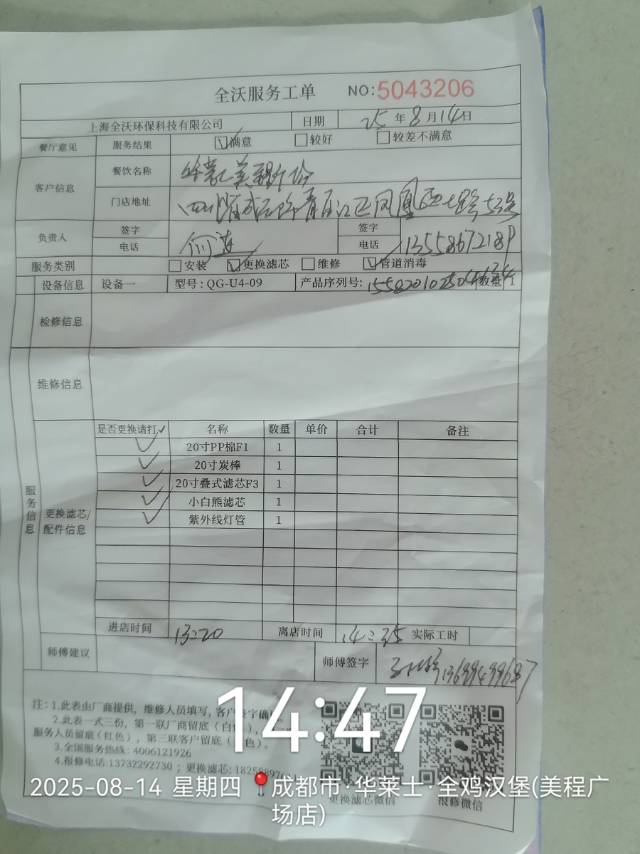 全沃服务工单 NO:5043206
上海全沃环保科技有限公司 日期 25年8月14日
餐厅意见 服务结果 ☑满意 □较好 □较差不满意
客户信息 餐饮名称
门店地址
负责人 签字 签字
电话 电话 13558672189
服务类别 □安装 ☑更换滤芯 □维修 ☑管道消毒
设备信息 设备一 型号: QG-U4-09 产品序列号: 数量 1
检修信息
维修信息
服务信息
更换滤芯/配件信息
是否更换请打✓ 名称 数量 单价 合计 备注
✓ 20寸PP棉F1 1
✓ 20寸炭棒 1
✓ 20寸叠式滤芯F3 1
✓ 小白熊滤芯 1
✓ 紫外线灯管 1
进店时间 13:20 离店时间 14:35 实际工时
师傅建议 师傅签字
注: 1.此表由厂商提供, 维修人员填写, 客户签字确
2.此表一式三份, 第一联厂商留底(白
服务人员留底(红色), 第三联客户留底(
3.全国服务热线: 4006121926
4.报修电话: 13732292730 ; 更换滤芯:
更换滤芯微信 报修微信
14:47
2025-08-14 星期四 成都市·华莱士·全鸡汉堡(美程广
场店)